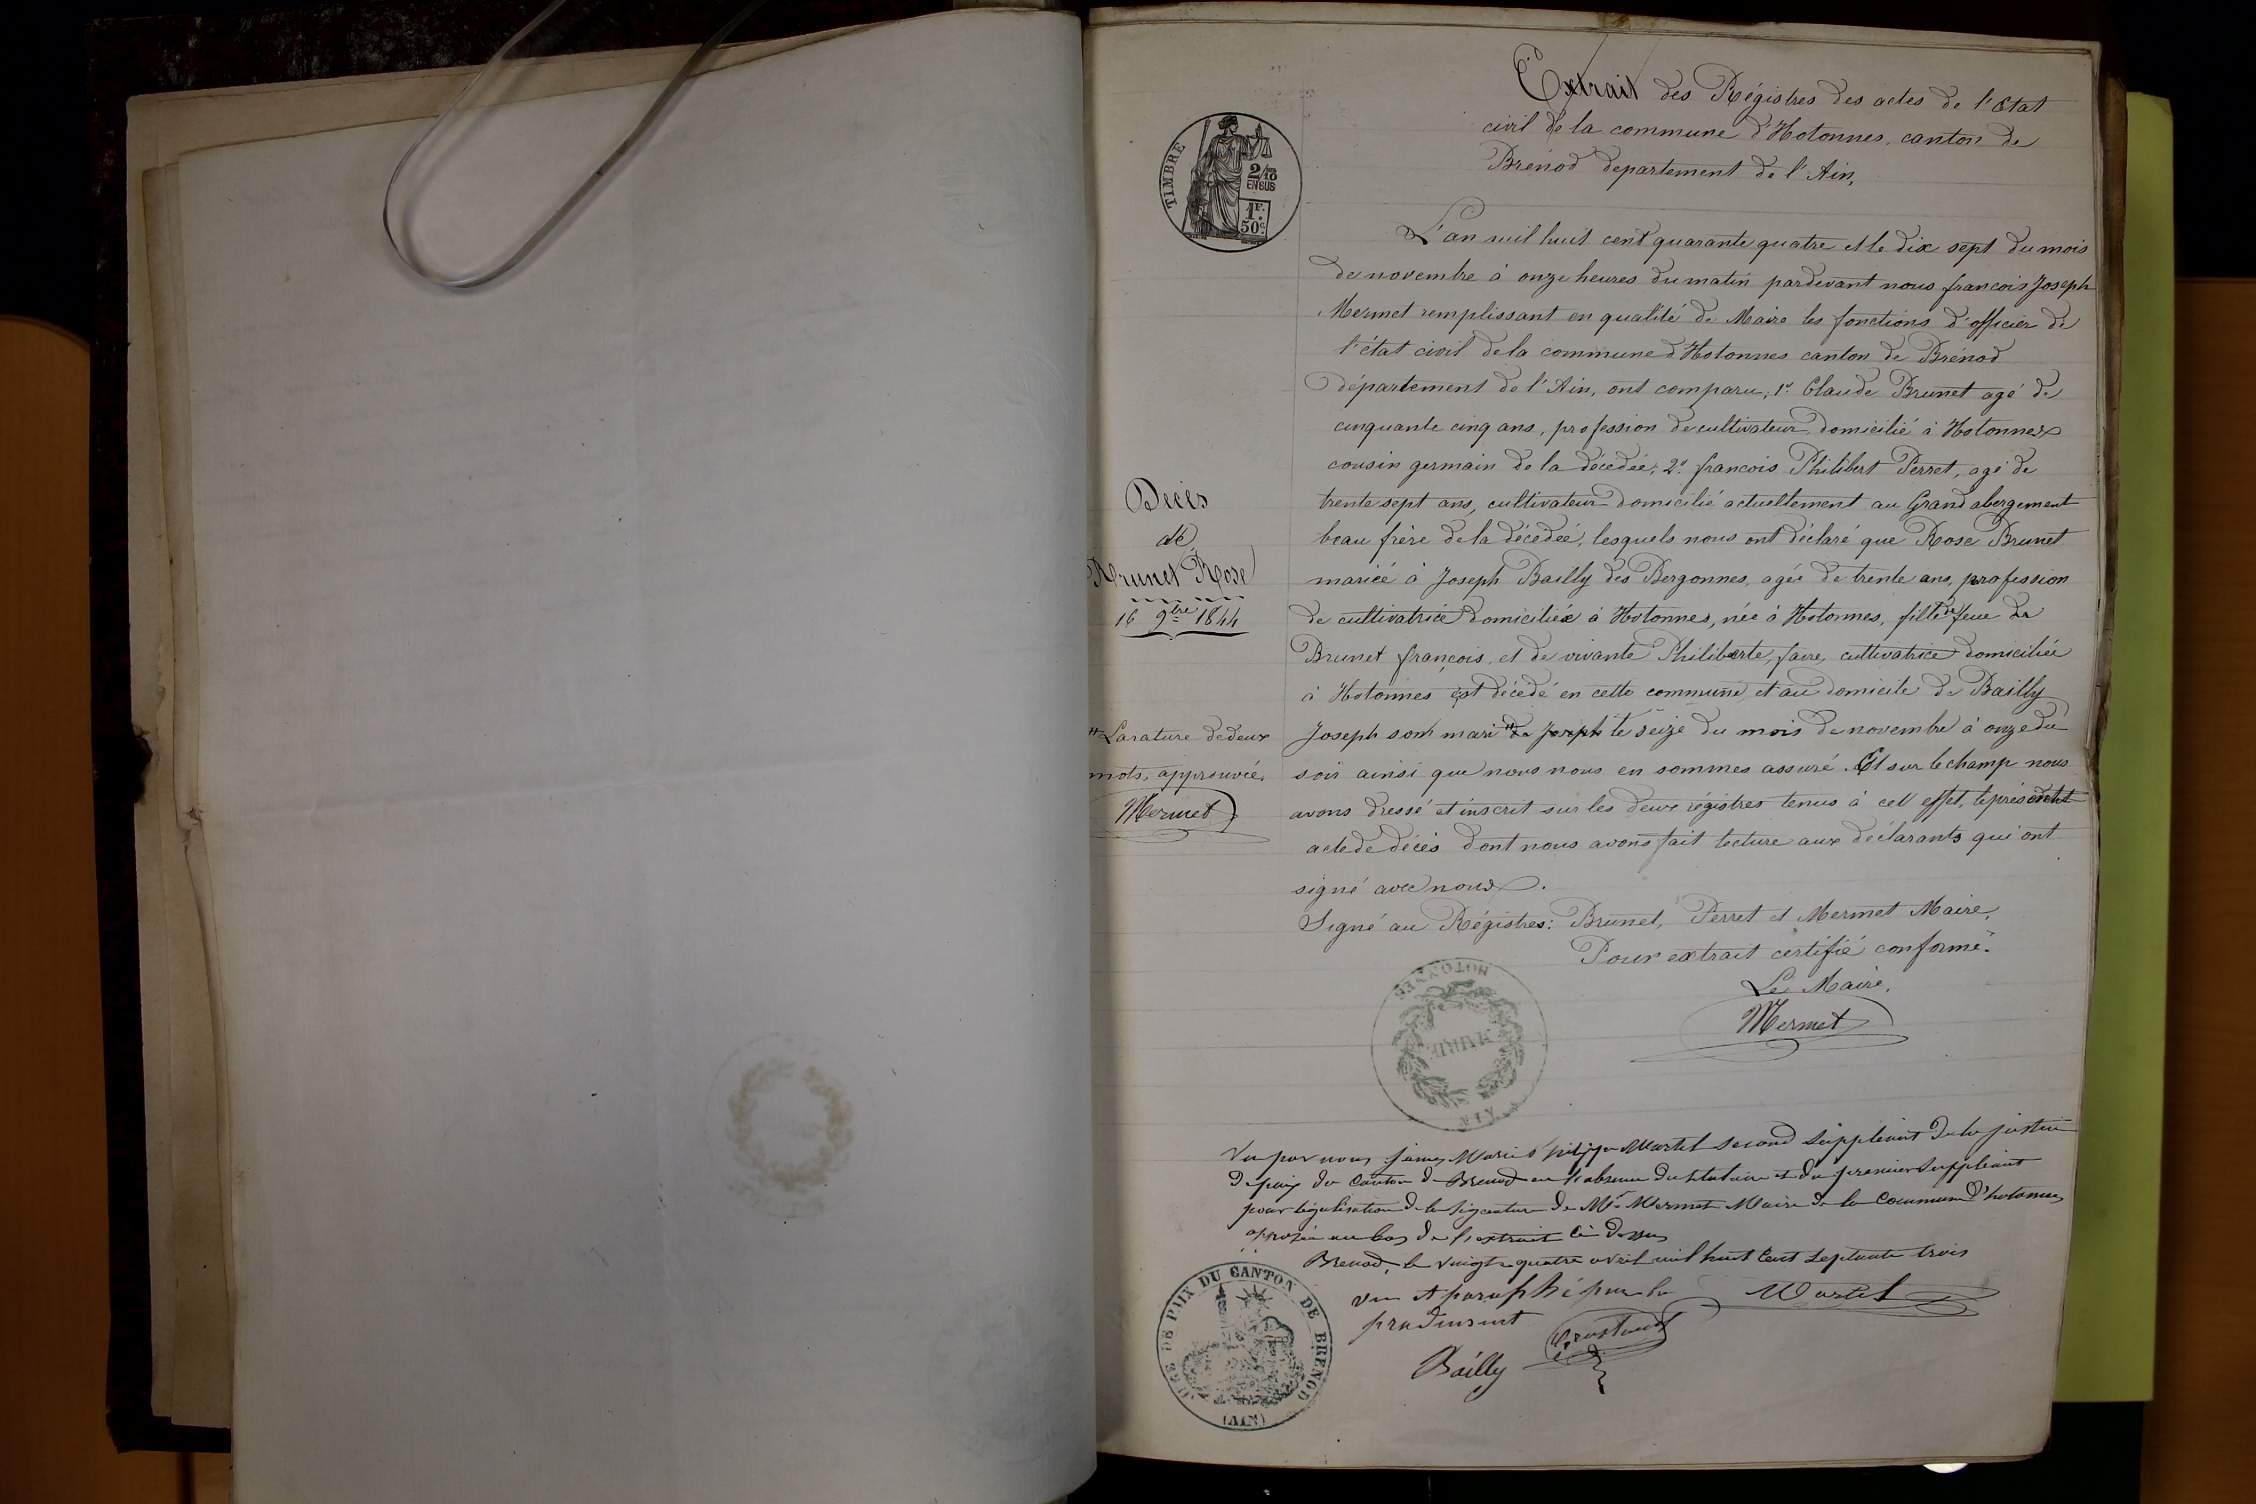 Extrait des Régistres des actes de l'Etat
civil de la commune d'Hotonnes, canton de
Brénod departement de l'Ain,
TIMBRE
2/10
EN SUS
1F.
50c.
L'an mil huit cent quarante quatre et le dix sept du mois
de novembre à onze heures du matin pardevant nous francois Joseph
Mermet remplissant en qualité de Maire les fonctions d'officier de
l'état civil de la commune d'Hotonnes canton de Brénod
département de l'Ain, ont comparu, 1° Claude Brunet agé de
cinquante cinq ans, profession de cultivateur domicilié à Hotonnes
cousin germain de la décédée; 2° francois Philibert Perret, agé de
trente sept ans, cultivateur domicilié actuellement au Grand abergement
beau frère de la décédée, lesquels nous ont déclaré que Rose Brunet
mariée à Joseph Bailly des Bergonnes, agée de trente ans, profession
de cultivatrice domiciliée à Hotonnes, née à Hotonnes, fille de feue de
Brunet françois, et de vivante Philiberte faire, cultivatrice domiciliée
à Hotonnes est décédé en cette commune et au domicile de Bailly
Joseph son mari # de Joseph le seize du mois de novembre à onze du
soir ainsi que nous nous en sommes assuré. Et sur le champ nous
avons dressé et inscrit sur les deux régistres tenus à cet effet, le présent
acte de décès dont nous avons fait lecture aux déclarants qui ont
signé avec nous.
Décès
de
Brunet Rose
16 9bre 1844
# La rature de deux
mots, approuvée.
Mermet
Signé au Régistres: Brunet, Perret et Mermet Maire.
Pour extrait certifié conforme.
Le Maire,
Mermet
HOTONNES
MAIRIE
AIN
Vu par nous James Marie Philippe Martel second suppléant de la justice
de paix du Canton de Brenod en l'absence du titulaire et du premier suppléant
pour légalisation de la signature de Mr Mermet Maire de la Commune d'hotonnes
apposée au bas de l'extrait ci dessus
Brenod, le vingt quatre avril mil huit Cent septante trois
Martel
vu et paraphé par le
Bailly
JUGE DE PAIX DU CANTON DE BRENOD
(AIN)